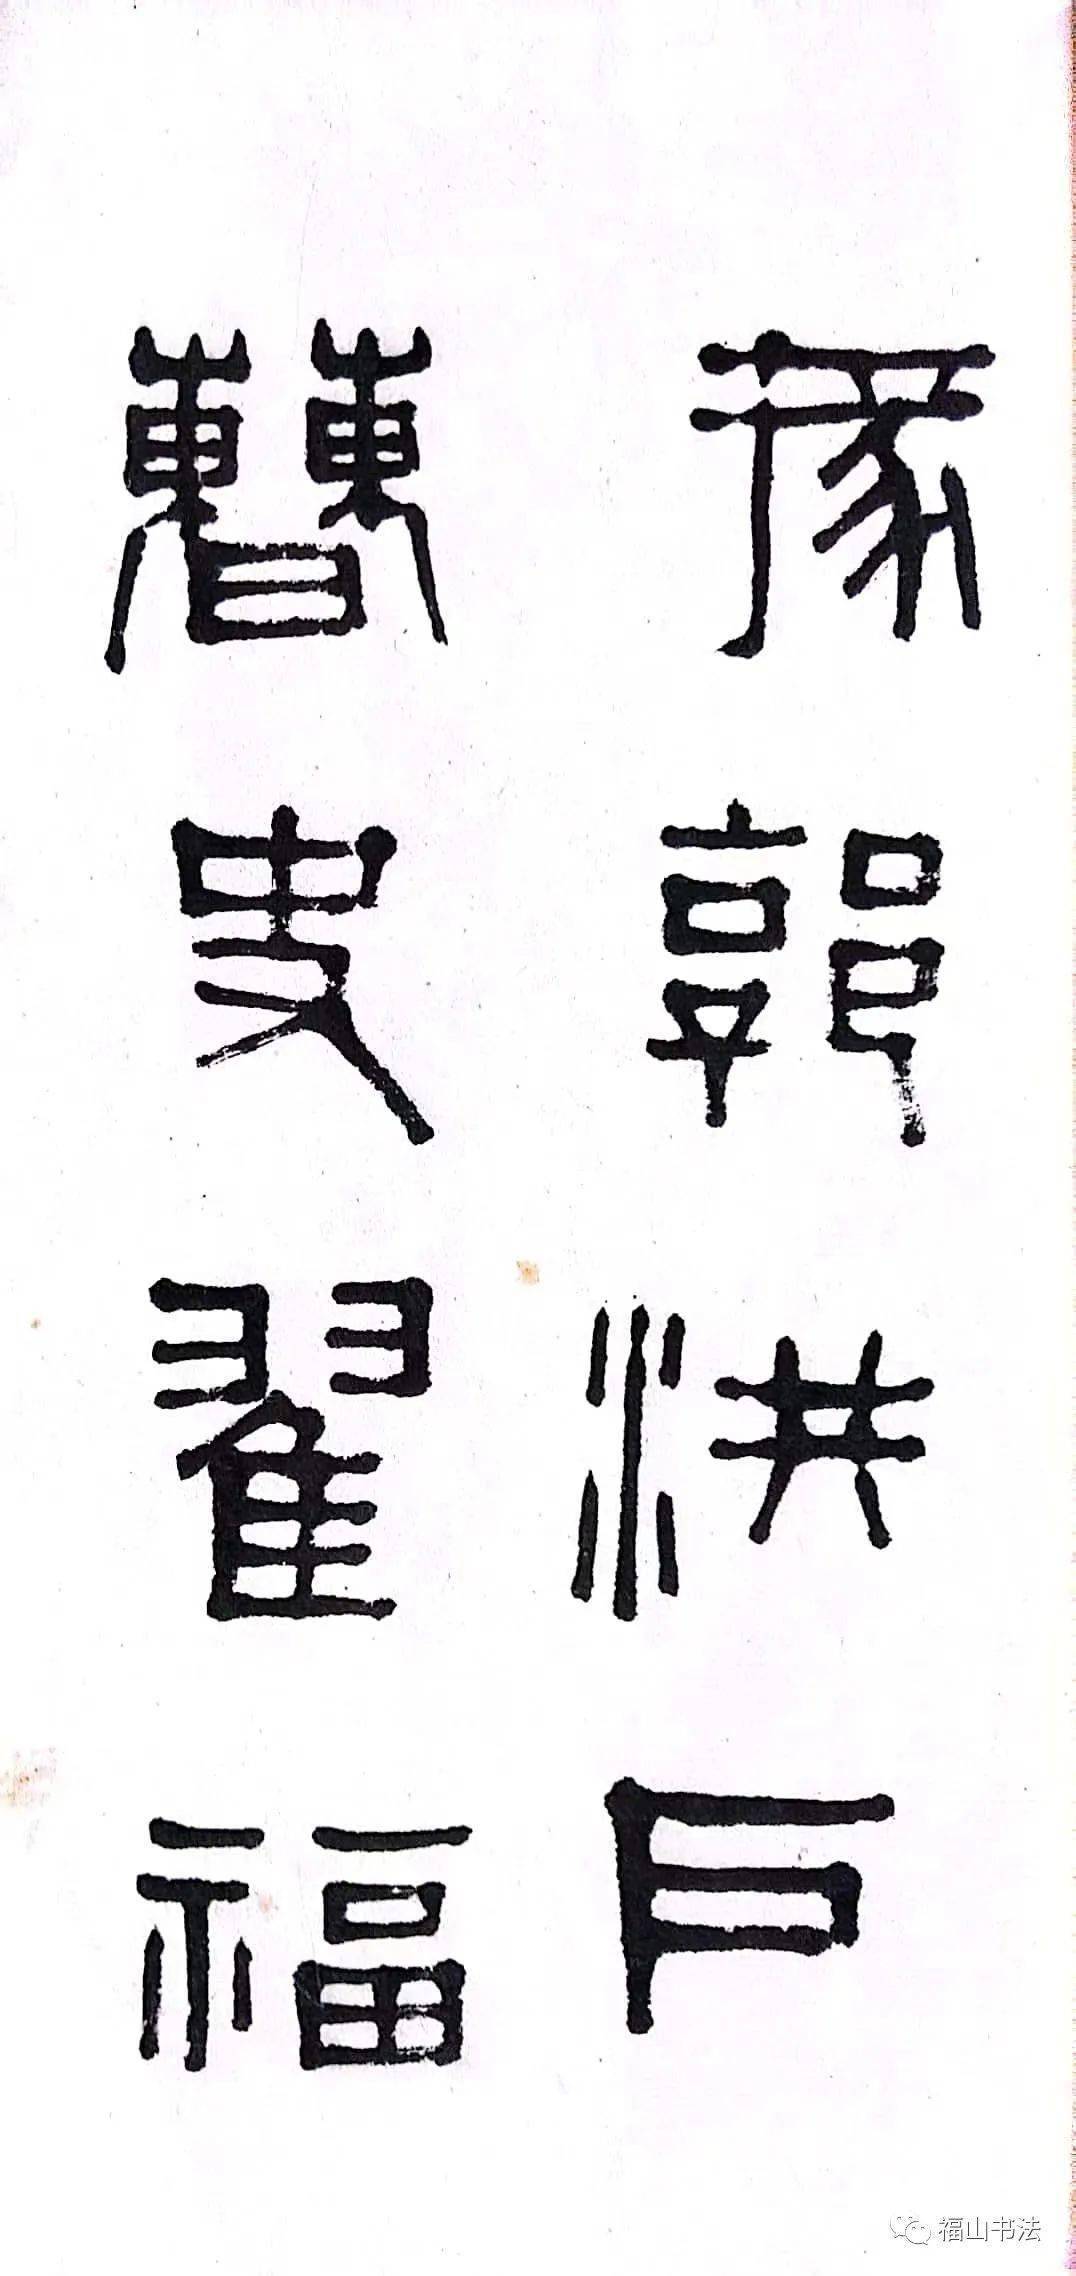 掾郭洪户
曹史翟福
福山书法